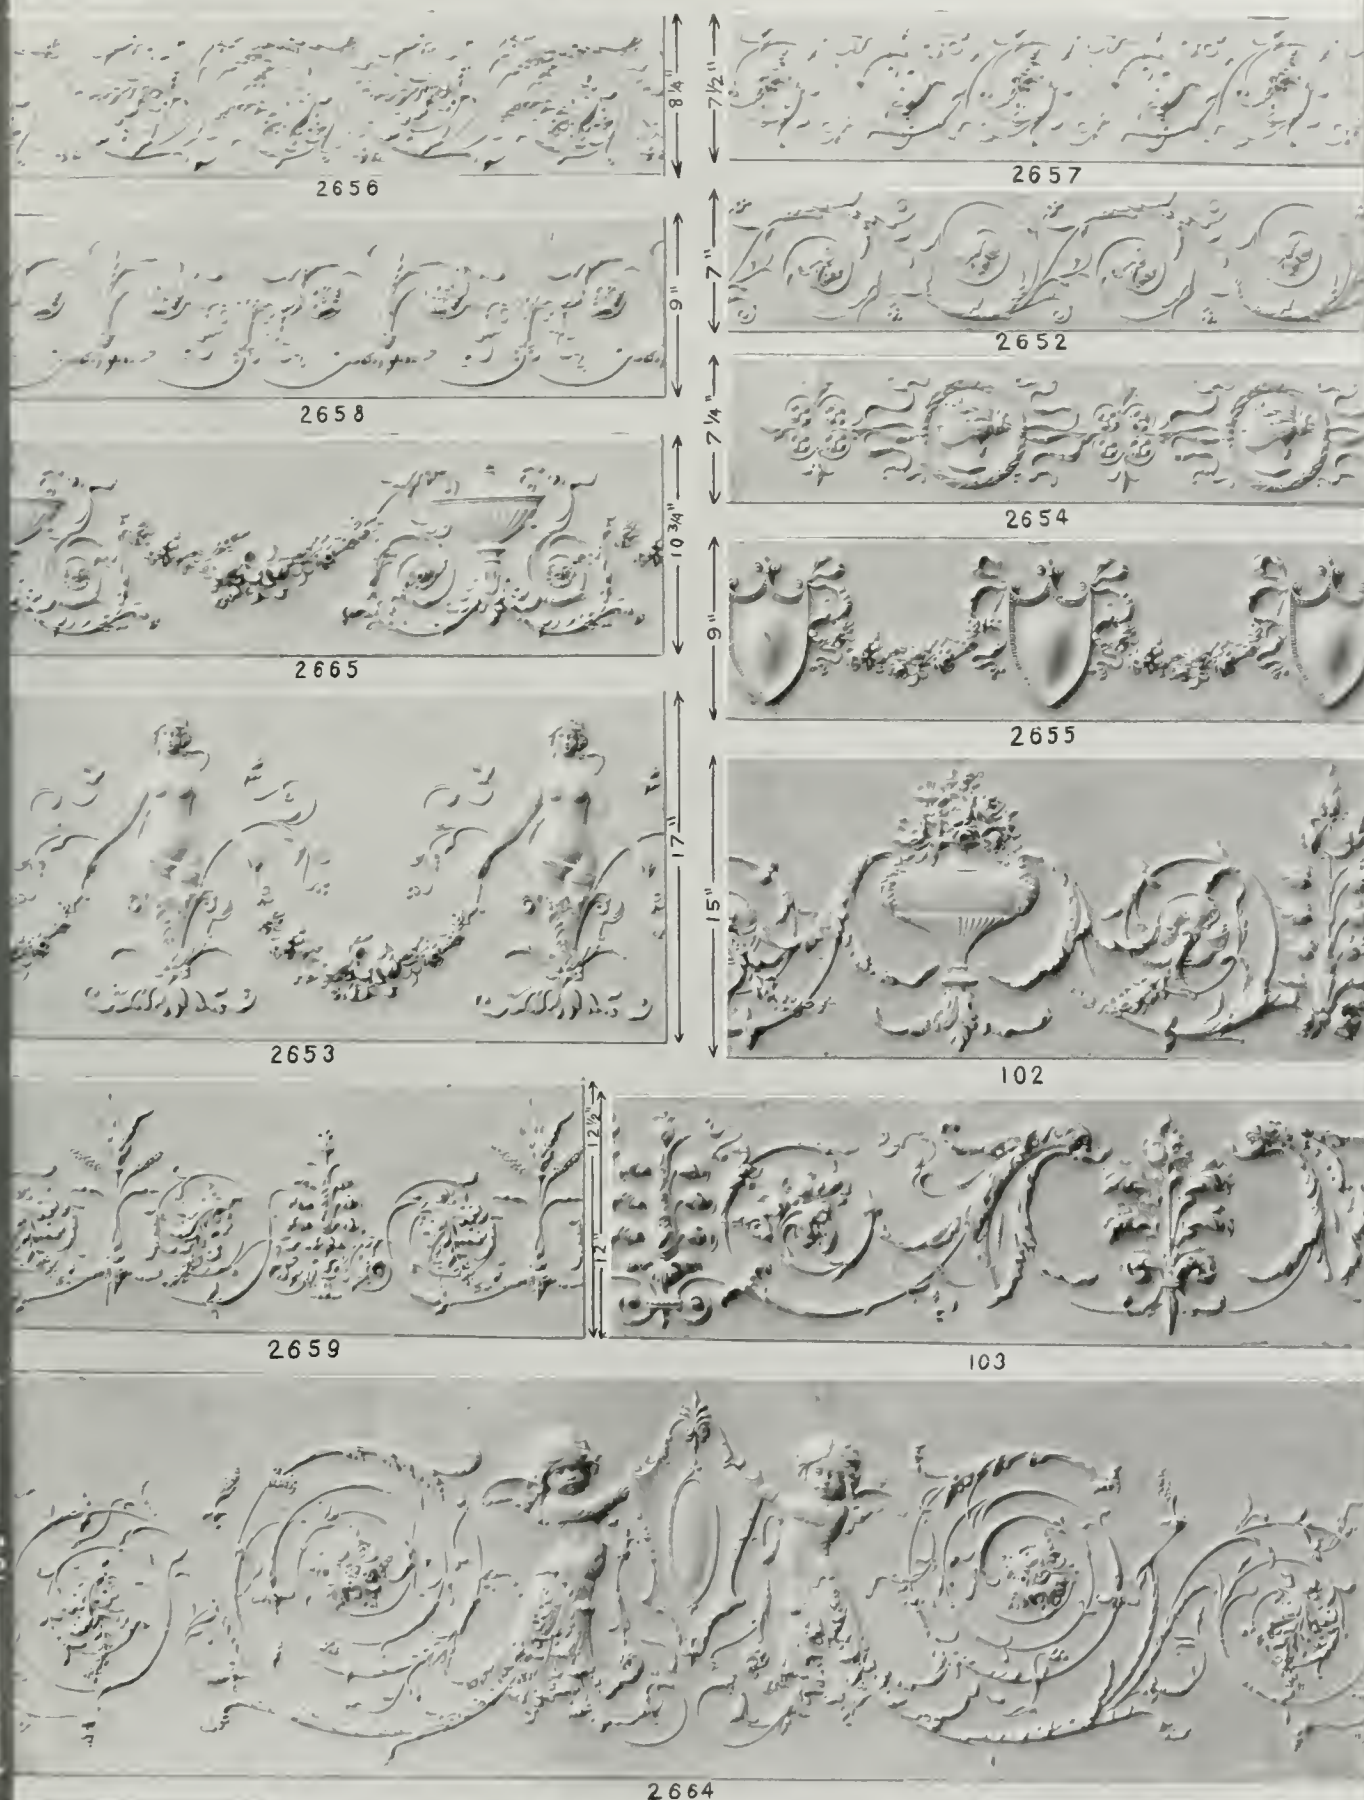 8¼"
7½"
2656
2657
9"
7"
2652
2658
7¼"
2654
10¾"
9"
2665
2655
17"
15"
2653
102
12½"
12"
2659
103
2664